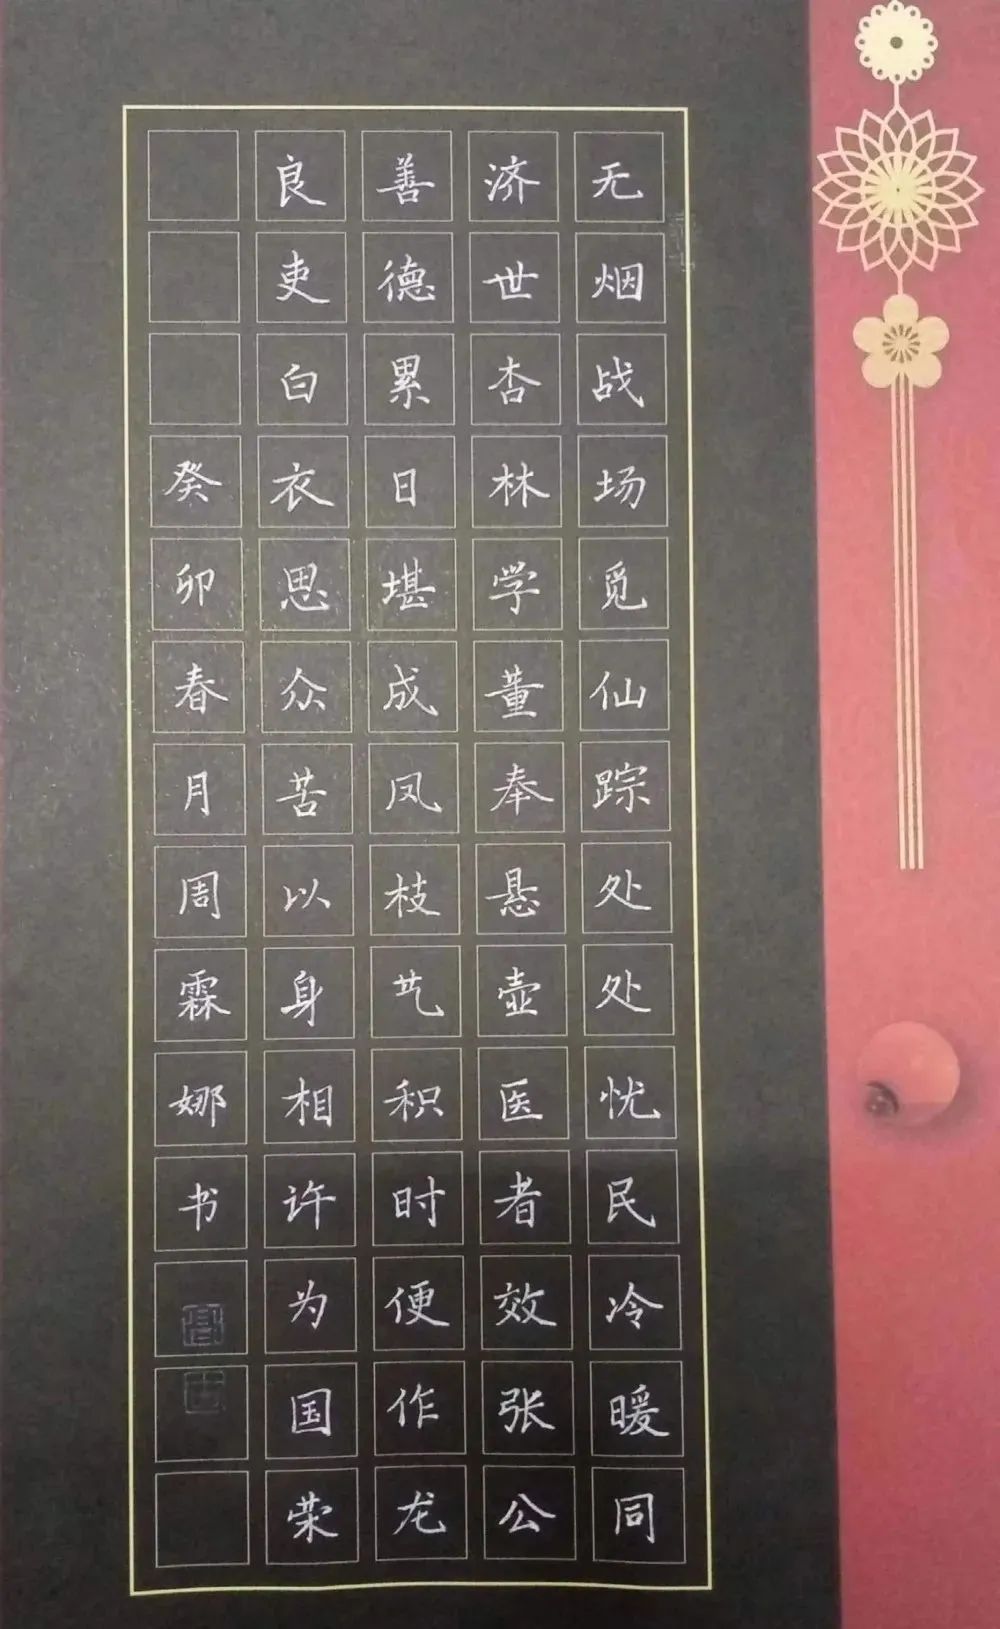 无烟战场觅仙踪处处忧民冷暖同
济世杏林学董奉悬壶医者效张公
善德累日堪成凤枝艺积时便作龙
良吏白衣思众苦以身相许为国荣
癸卯春月周霖娜书